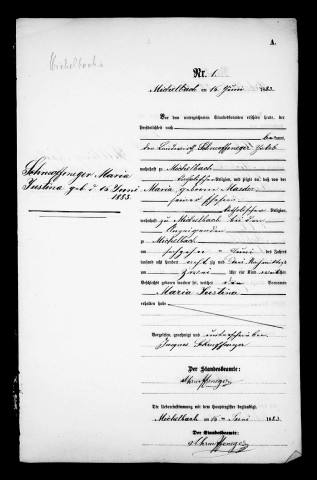 A.
Michelbach
Nr. 1.
Michelbach am 16 Juni 1883.
Vor dem unterzeichneten Standesbeamten erschien heute, der
Persönlichkeit nach
kannt,
den Landwirt Schnoffeneger Jakob
Schnoffeneger Maria
Justina geb. d. 15 Juni
1883.
wohnhaft zu Michelbach
katholischer Religion, und zeigte an, daß von der
Maria geborenen
seiner Ehefrau
katholischer Religion,
wohnhaft zu Michelbach bei dem
Anzeigenden
zu Michelbach
am fünfzehnten Juni des Jahres
tausend acht hundert achtzig und drei Nachmittags
um zwei Uhr ein Kind
Geschlechts geboren worden sei, welches den Vornamen
Maria Justina
erhalten habe
Vorgelesen, genehmigt und unterschrieben
Jaques
Der Standesbeamte:
Schnoffeneger
Die Uebereinstimmung mit dem Hauptregister beglaubigt.
Michelbach am 16 Juni 1883.
Der Standesbeamte:
Schnoffeneger